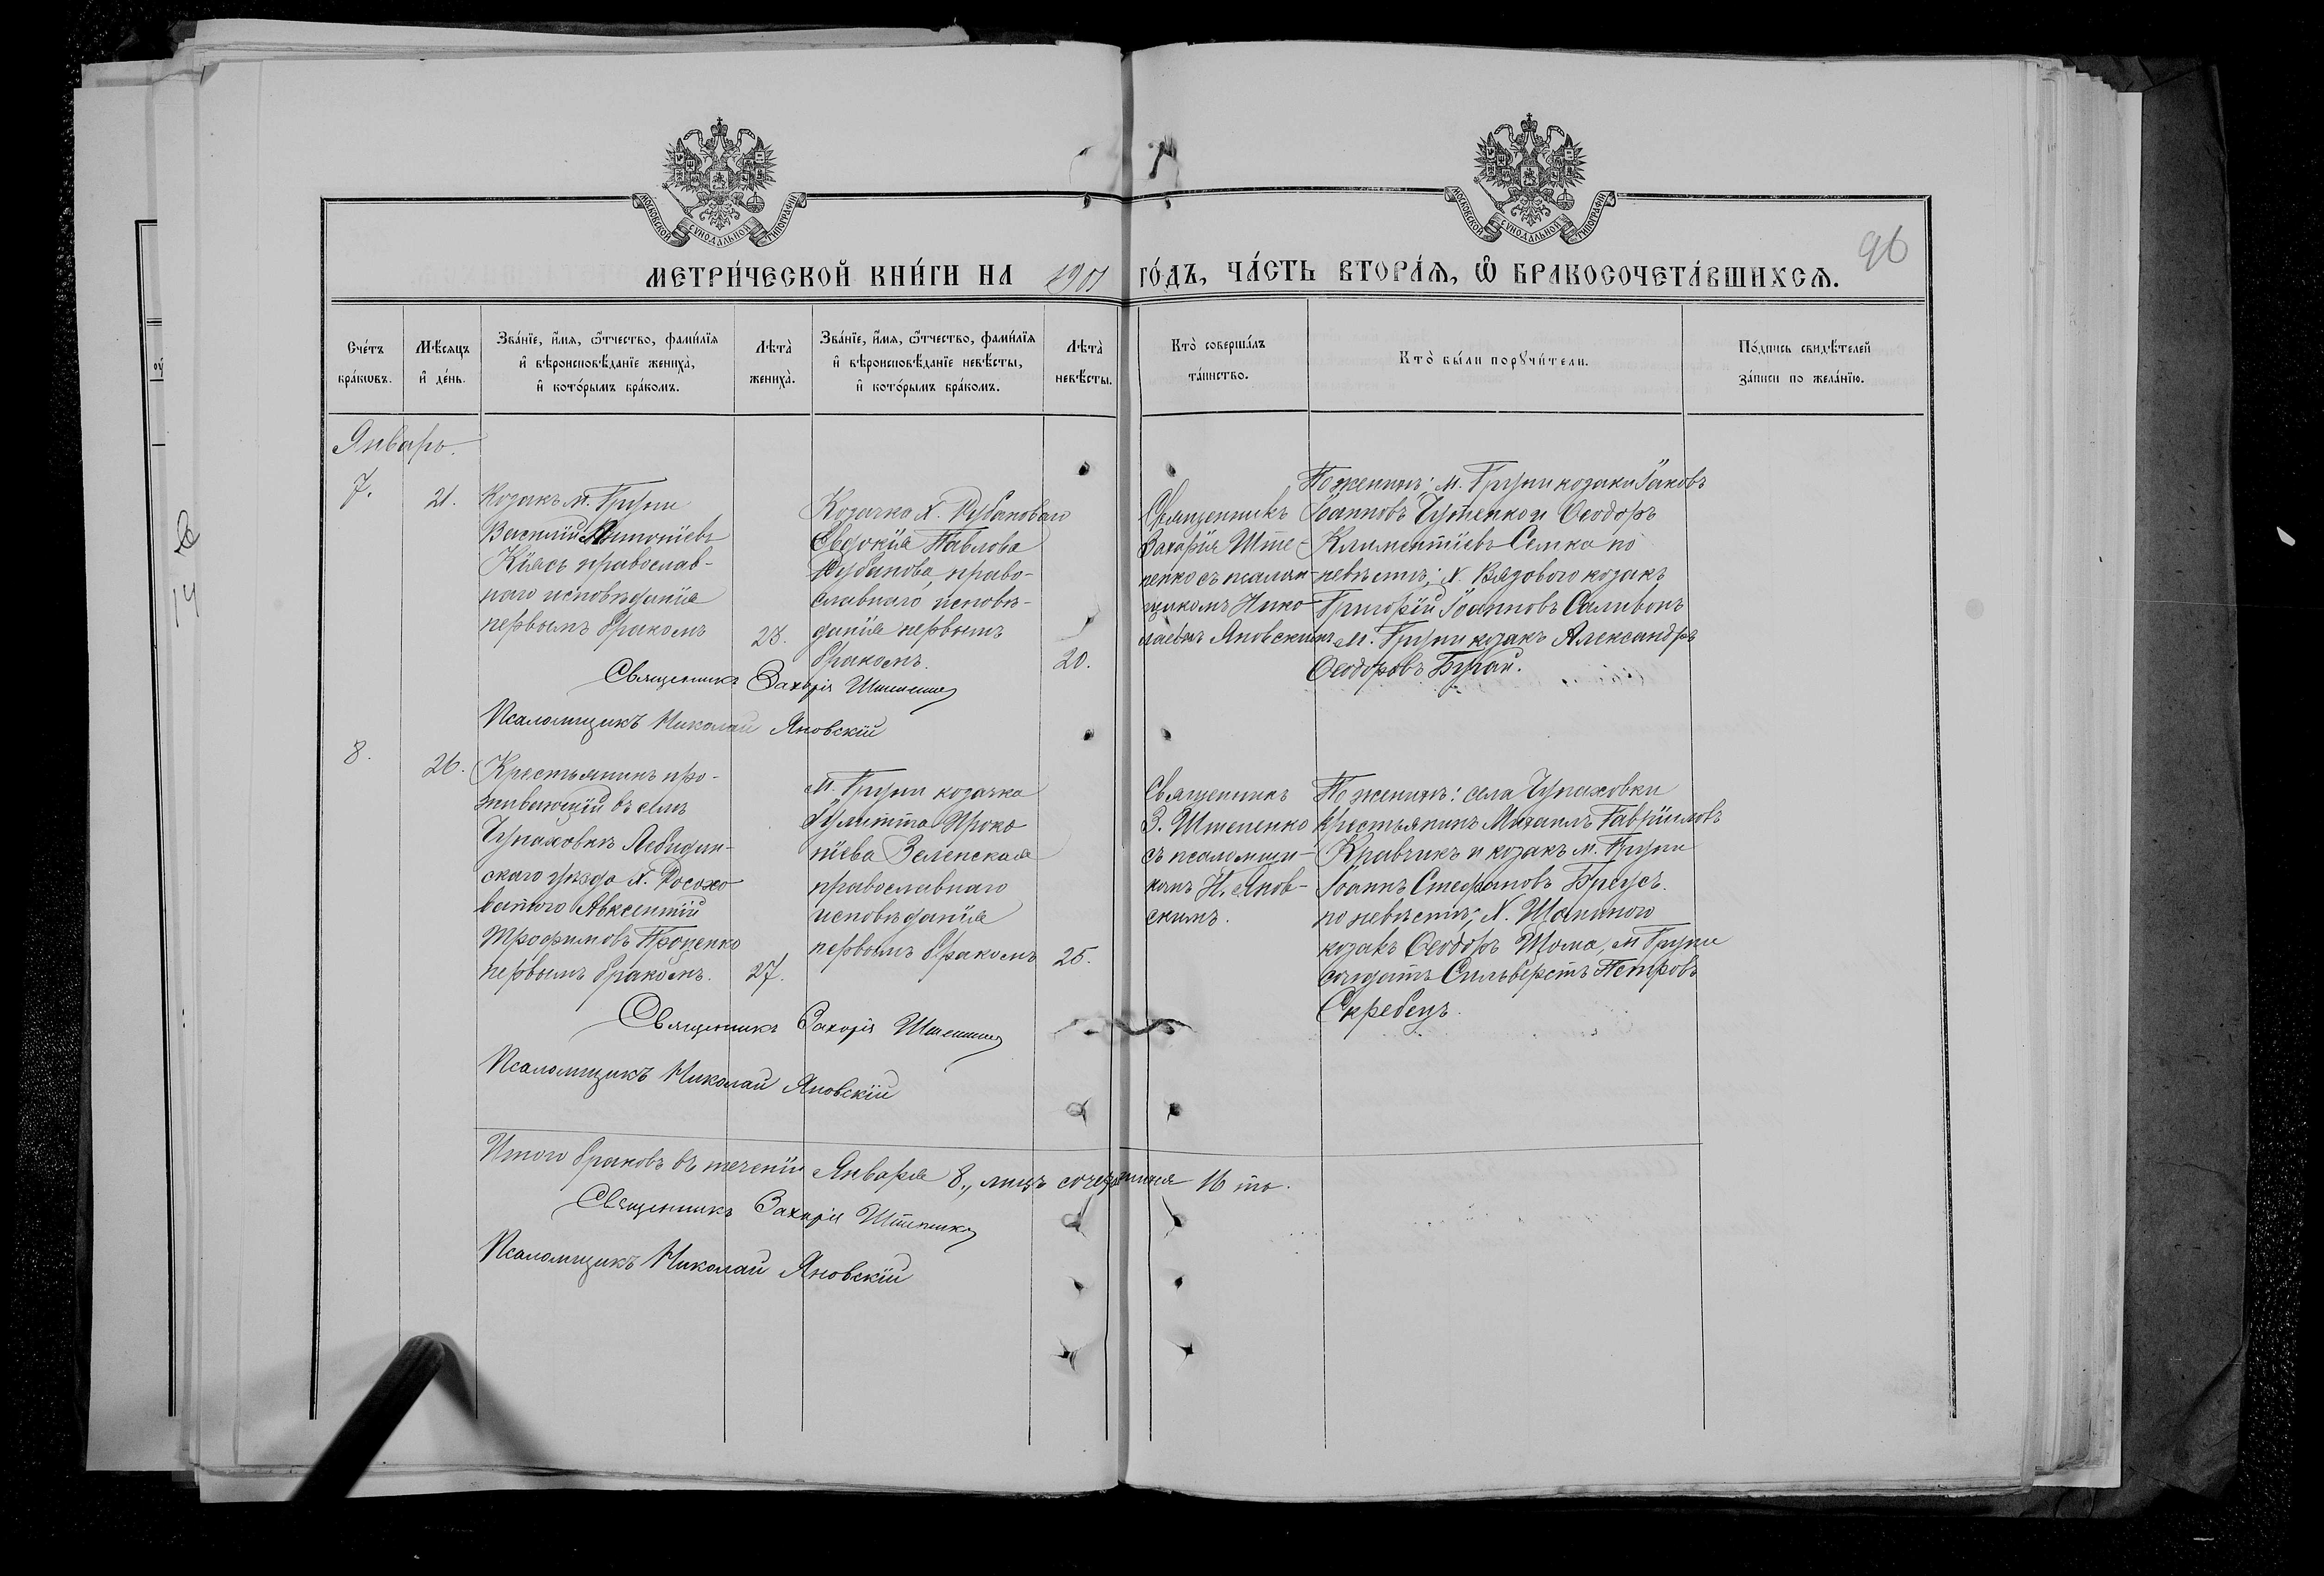 МОСКОВСКОЙ СУНОДАЛЬНОЙ ТИПОГРАФІИ
МОСКОВСКОЙ СУНОДАЛЬНОЙ ТИПОГРАФІИ
96
МЕТРИ́ЧЕСКОЙ КНИ́ГИ НА 1901 ГО́ДЪ, ЧА́СТЬ ВТОРА́Я, Ѽ БРАКОСОЧЕТА́ВШИХСЯ.
Сче́тъ
бра́кѡвъ.
Мѣ́сяцъ
и҆ де́нь.
Зва́нїе, и҆́мя, ѻ҆́тчество, фами́лїя
и҆ вѣроисповѣ́данїе жениха̀,
и҆ кото́рымъ бра́комъ.
Лѣта̀
жениха̀.
Зва́нїе, и҆́мя, ѻ҆́тчество, фами́лїя
и҆ вѣроисповѣ́данїе невѣ́сты,
и҆ кото́рымъ бра́комъ.
Лѣта̀
невѣ́сты.
Кто̀ соверша́лъ
та́инство.
Кто̀ бы́ли порꙋчи́тели.
По́дпись свидѣ́телей
за́писи по жела́нїю.
Январь.
7.
21.
Козакъ м. Груни
Василій Антоніевъ
Княсь православ-
наго исповѣданія
первымъ бракомъ
23.
Козачка х. Рубановаго
Евдокія Павлова
Рубанова, право-
славнаго исповѣ-
данія первымъ
бракомъ.
20.
Священникъ
Захарія Ште-
пенко съ псалом-
щикомъ Нико-
лаемъ Яновскимъ
По женихѣ; м. Груни козаки Іаковъ
Іоанновъ и Ѳеодоръ
Климентіевъ Семка по
невѣстѣ; х. Вязоваго козакъ
Григорій Іоанновъ Саливонъ
м. Груни козакъ Александръ
Ѳеодоровъ Бугай.
Священникъ Захарія Штепенко
Псаломщикъ Николай Яновскій
8.
26.
Крестьянинъ про-
живающій въ селѣ
Чупаховкѣ Лебедин-
скаго уѣзда х. Росохо-
ватаго Авксентій
Трофимовъ Проценко
первымъ бракомъ.
27.
м. Груни козачка
Іулитта Проко-
піева Зеленская
православнаго
исповѣданія
первымъ бракомъ
25.
Священникъ
З. Штепенко
съ псаломщи-
комъ Н. Янов-
скимъ.
По женихѣ: села Чупаховки
крестьянинъ Михаилъ Гавріиловъ
Кравчикъ и козакъ м. Груни
Іоаннъ Стефановъ Бреусъ.
по невѣстѣ; х.
козакъ Ѳеодоръ м Груни
солдатъ Сильверстъ Петровъ
Скребецъ.
Священникъ Захарія Штепенко
Псаломщикъ Николай Яновскій
Итого браковъ въ теченіи Января 8, лицъ 16 ть.
Священникъ Захарія Штепенко
Псаломщикъ Николай Яновскій
14